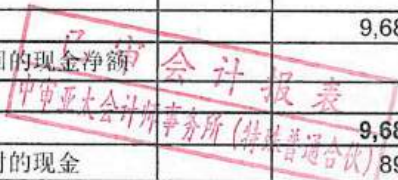 9,68
的现金净额
已审会计报表
中审亚太会计师事务所(特殊普通合伙)
9,68
的现金
89